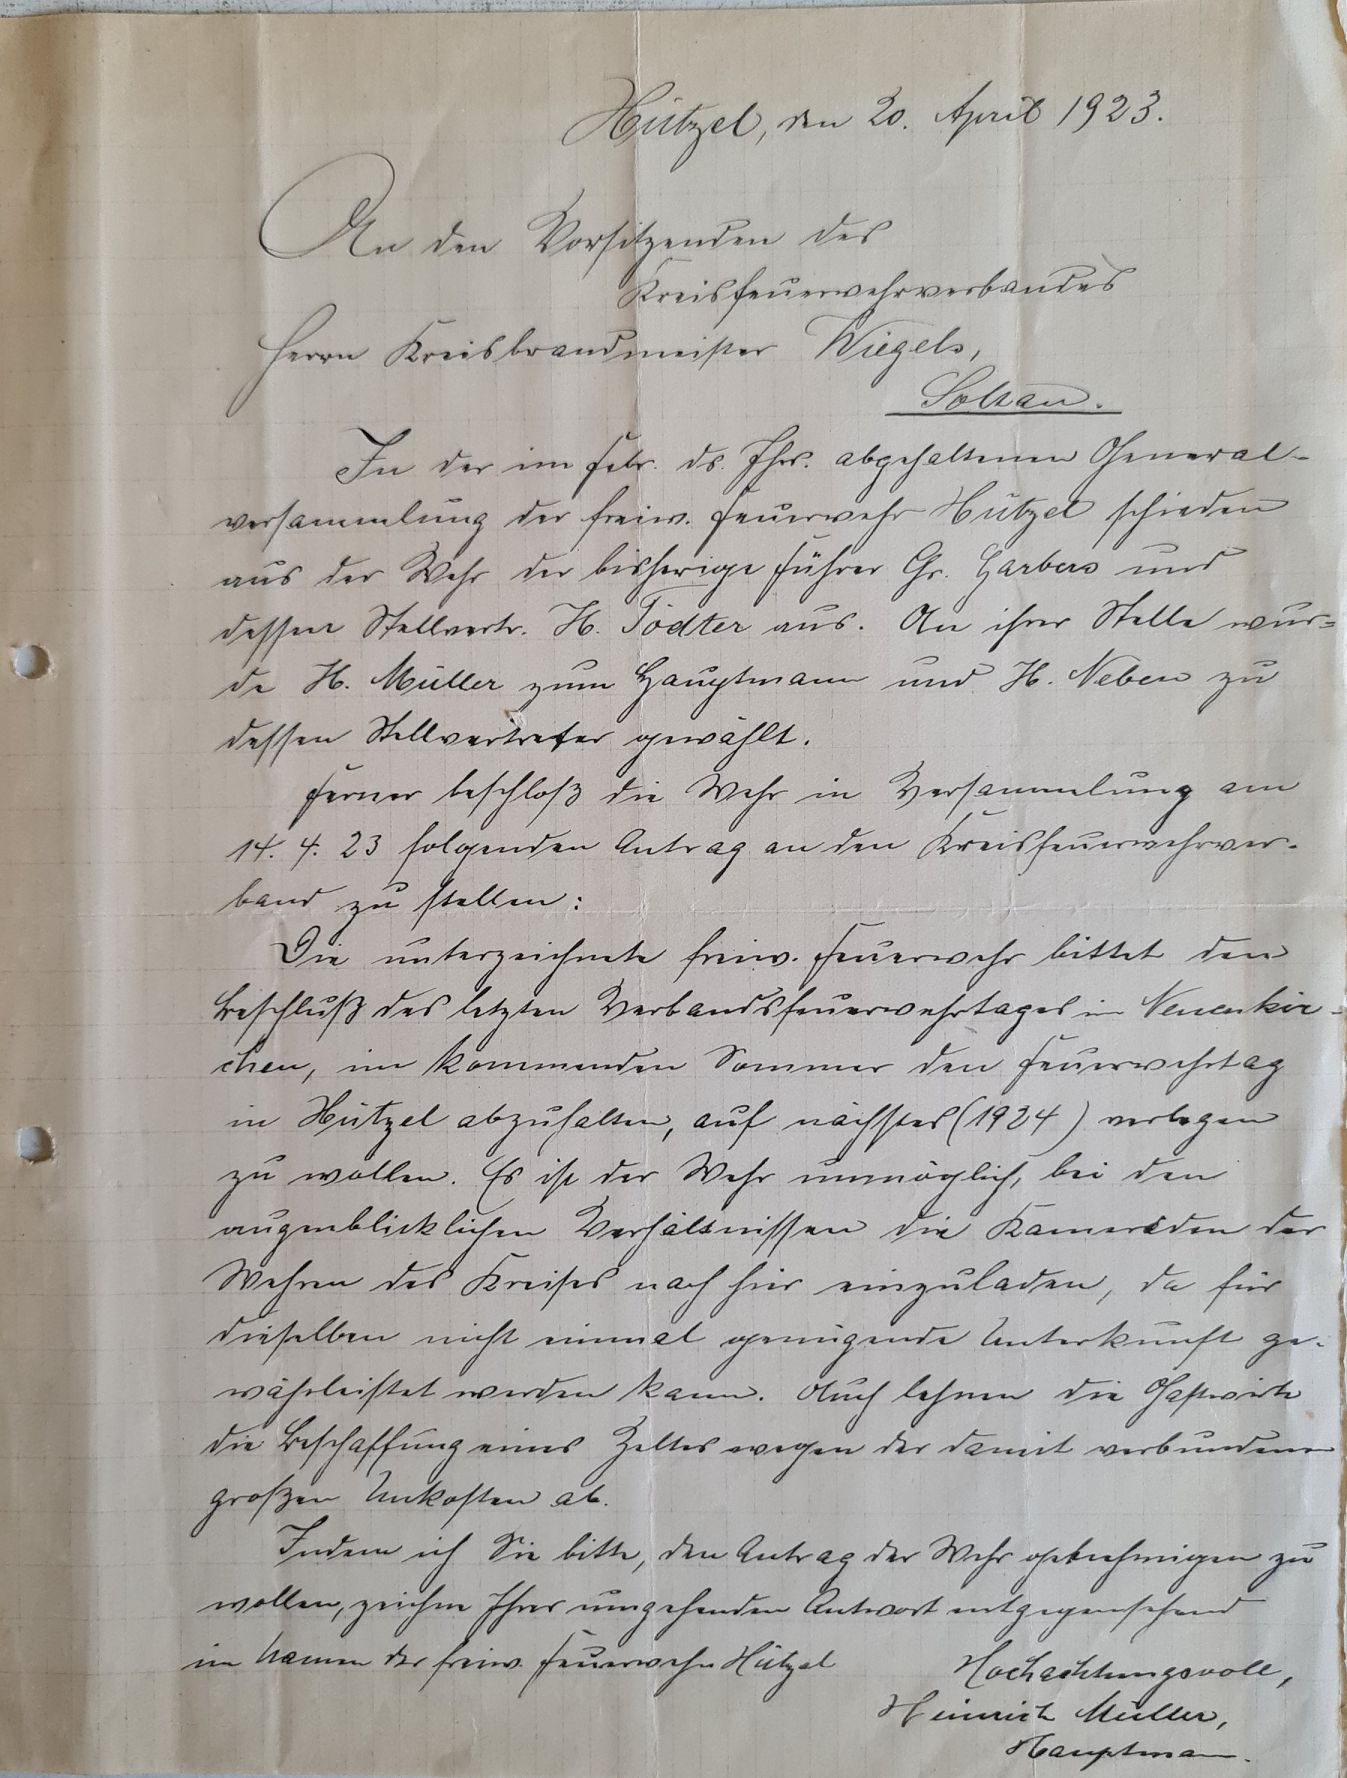 Hützel, den 20. April 1923.
An den Vorsitzenden des
Kreisfeuerwehrverbandes
Herrn Kreisbrandmeister Wiegels,
Soltau.
In der im Febr. ds. Jhrs. abgehaltenen General-
versammlung der freiw. Feuerwehr Hützel schieden
aus der Wehr der bisherige Führer Gr. Garbers und
dessen Stellvertr. H. Tödter aus. An ihrer Stelle wur-
de H. Müller zum Hauptmann und H. Neben zu
dessen Stellvertreter gewählt.
Ferner beschloß die Wehr in Versammlung am
14. 4. 23 folgenden Antrag an den Kreisfeuerwehrver-
band zu stellen:
Die unterzeichnete freiw. Feuerwehr bittet den
Beschluß des letzten Verbandsfeuerwehrtages in Neuenkir-
chen, im kommenden Sommer den Feuerwehrtag
in Hützel abzuhalten, auf nächstes (1924) verlegen
zu wollen. Es ist der Wehr unmöglich, bei den
augenblicklichen Verhältnissen die Kameraden der
Wehren des Kreises nach hier einzuladen, da für
dieselben nicht einmal genügende Unterkunft ge-
währleistet werden kann. Auch lehnen die Gastwirte
die Beschaffung eines Zeltes wegen der damit verbundenen
großen Unkosten ab.
Indem ich Sie bitte, den Antrag der Wehr genehmigen zu
wollen, zeichne Ihrer umgehenden Antwort entgegensehend
im Namen der freiw. Feuerwehr Hützel
Hochachtungsvoll,
Heinrich Müller,
Hauptmann.